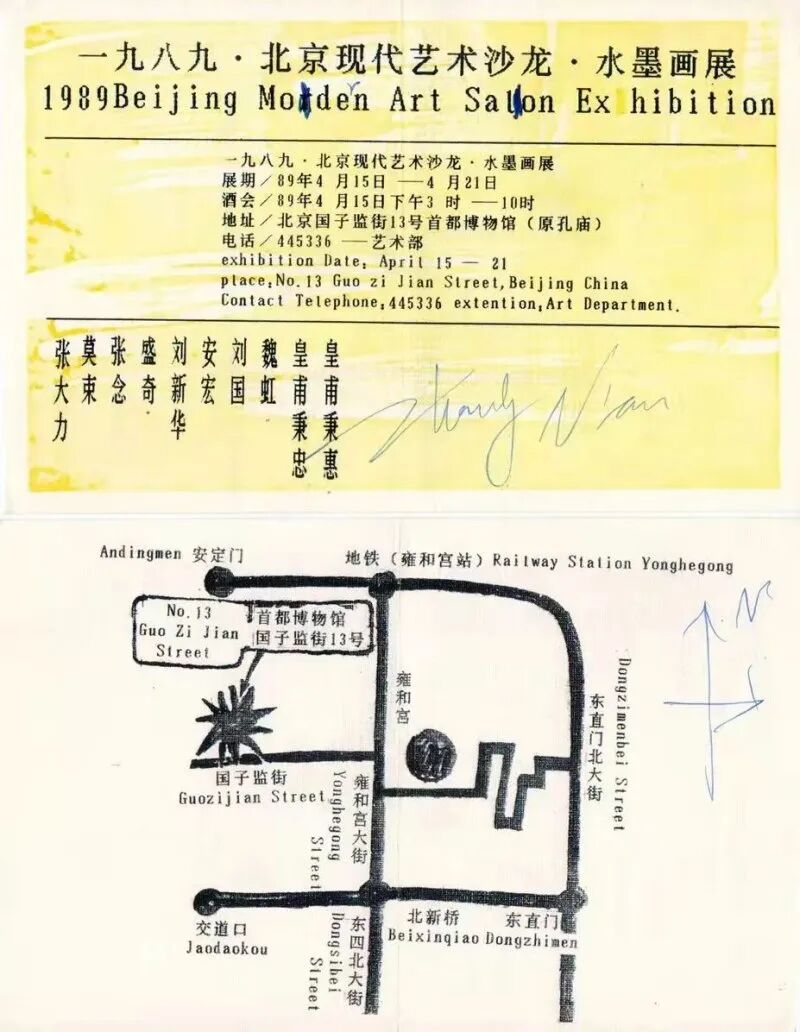 一九八九·北京现代艺术沙龙·水墨画展
1989Beijing Morden Art Salon Ex hibition
一九八九·北京现代艺术沙龙·水墨画展
展期／89年4 月15日 ——4 月21日
酒会／89年4 月15日下午3 时 ——10时
地址／北京国子监街13号首都博物馆（原孔庙）
电话／445336 ——艺术部
exhibition Date: April 15 — 21
place:No.13 Guo zi Jian Street,Beijing China
Contact Telephone:445336 extention:Art Department.
张大力
莫束
张念
盛奇
刘新华
安宏
刘国
魏虹
皇甫秉忠
皇甫秉惠
Zhang Nian
Andingmen 安定门
地铁（雍和宫站）Railway Station Yonghegong
No.13
Guo Zi Jian
Street
首都博物馆
国子监街13号
N
雍和宫
东直门北大街
Dongzimenbei Street
国子监街
Guozijian Street
Yonghegong Street
雍和宫大街
交道口
Jaodaokou
北新桥
Beixinqiao
东直门
Dongzhimen
Dongsibei Street
东四北大街